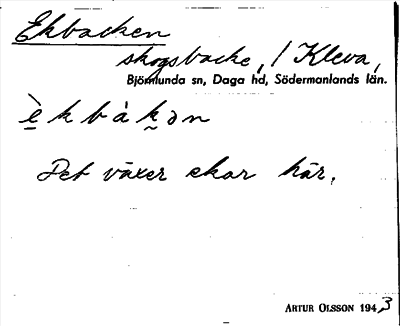 Ekbacken
skogsbacke, / Kleva,
Björnlunda sn, Daga hd, Södermanlands län.
è̱ k b à k̬ ə n
Det växer ekar här.
ARTUR OLSSON 1943